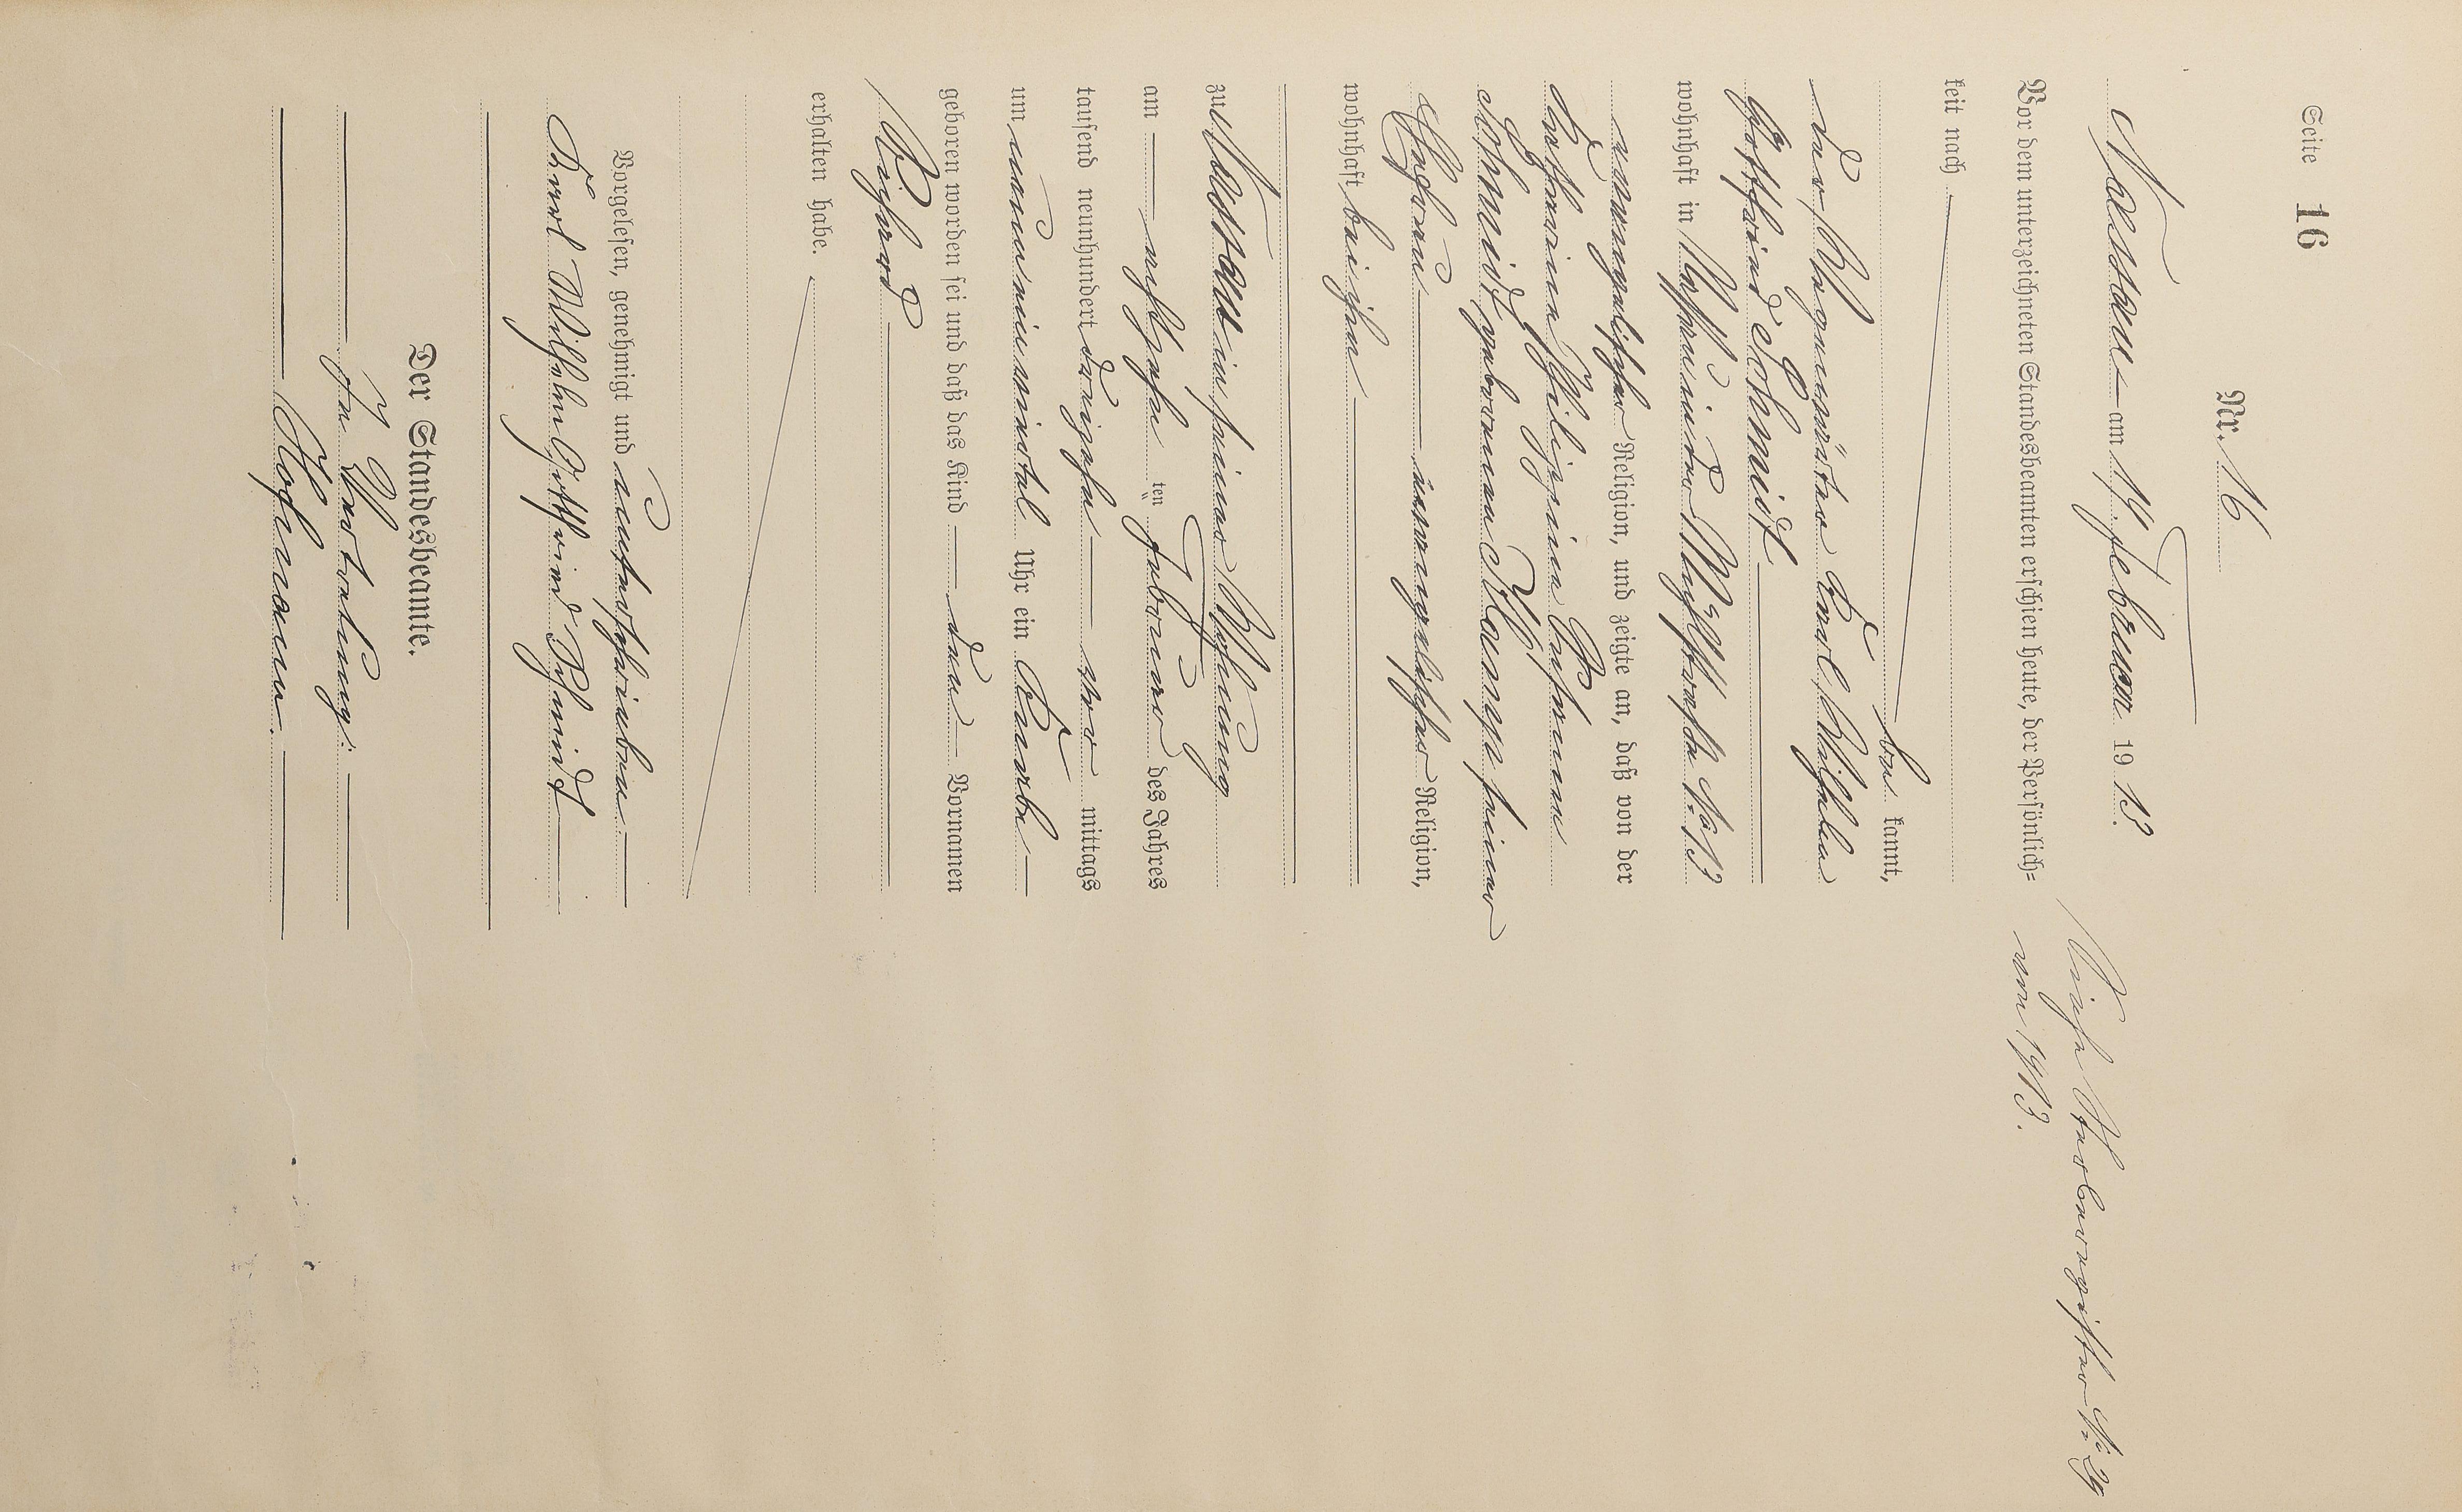 Seite 16
Nr. 16
Nassau am 19. Februar 1913.
Vor dem unterzeichneten Standesbeamten erschien heute, der Persönlich=
keit nach
be kannt,
der Wagenwärter Karl Wilhelm
Gottfried Schmidt
wohnhaft in Nassau in der Mühlstraße No 13
evangelischer Religion, und zeigte an, daß von der
Katharina Philippina Schmidt geborenen Kramp seiner
Ehefrau evangelischer Religion,
wohnhaft bei ihm
zu Nassau in seiner Wohnung
am achtzehn ten Februar des Jahres
tausend neunhundert dreizehn vor mittags
um neuneinviertel Uhr ein Knabe
geboren worden sei und daß das Kind den Vornamen
Richard
erhalten habe.
Vorgelesen, genehmigt und unterschrieben
Karl Wilhelm Gottfried Schmidt
Der Standesbeamte.
In Vertretung:
Hofmann.
Siehe Sterberegister No 29
von 1913.